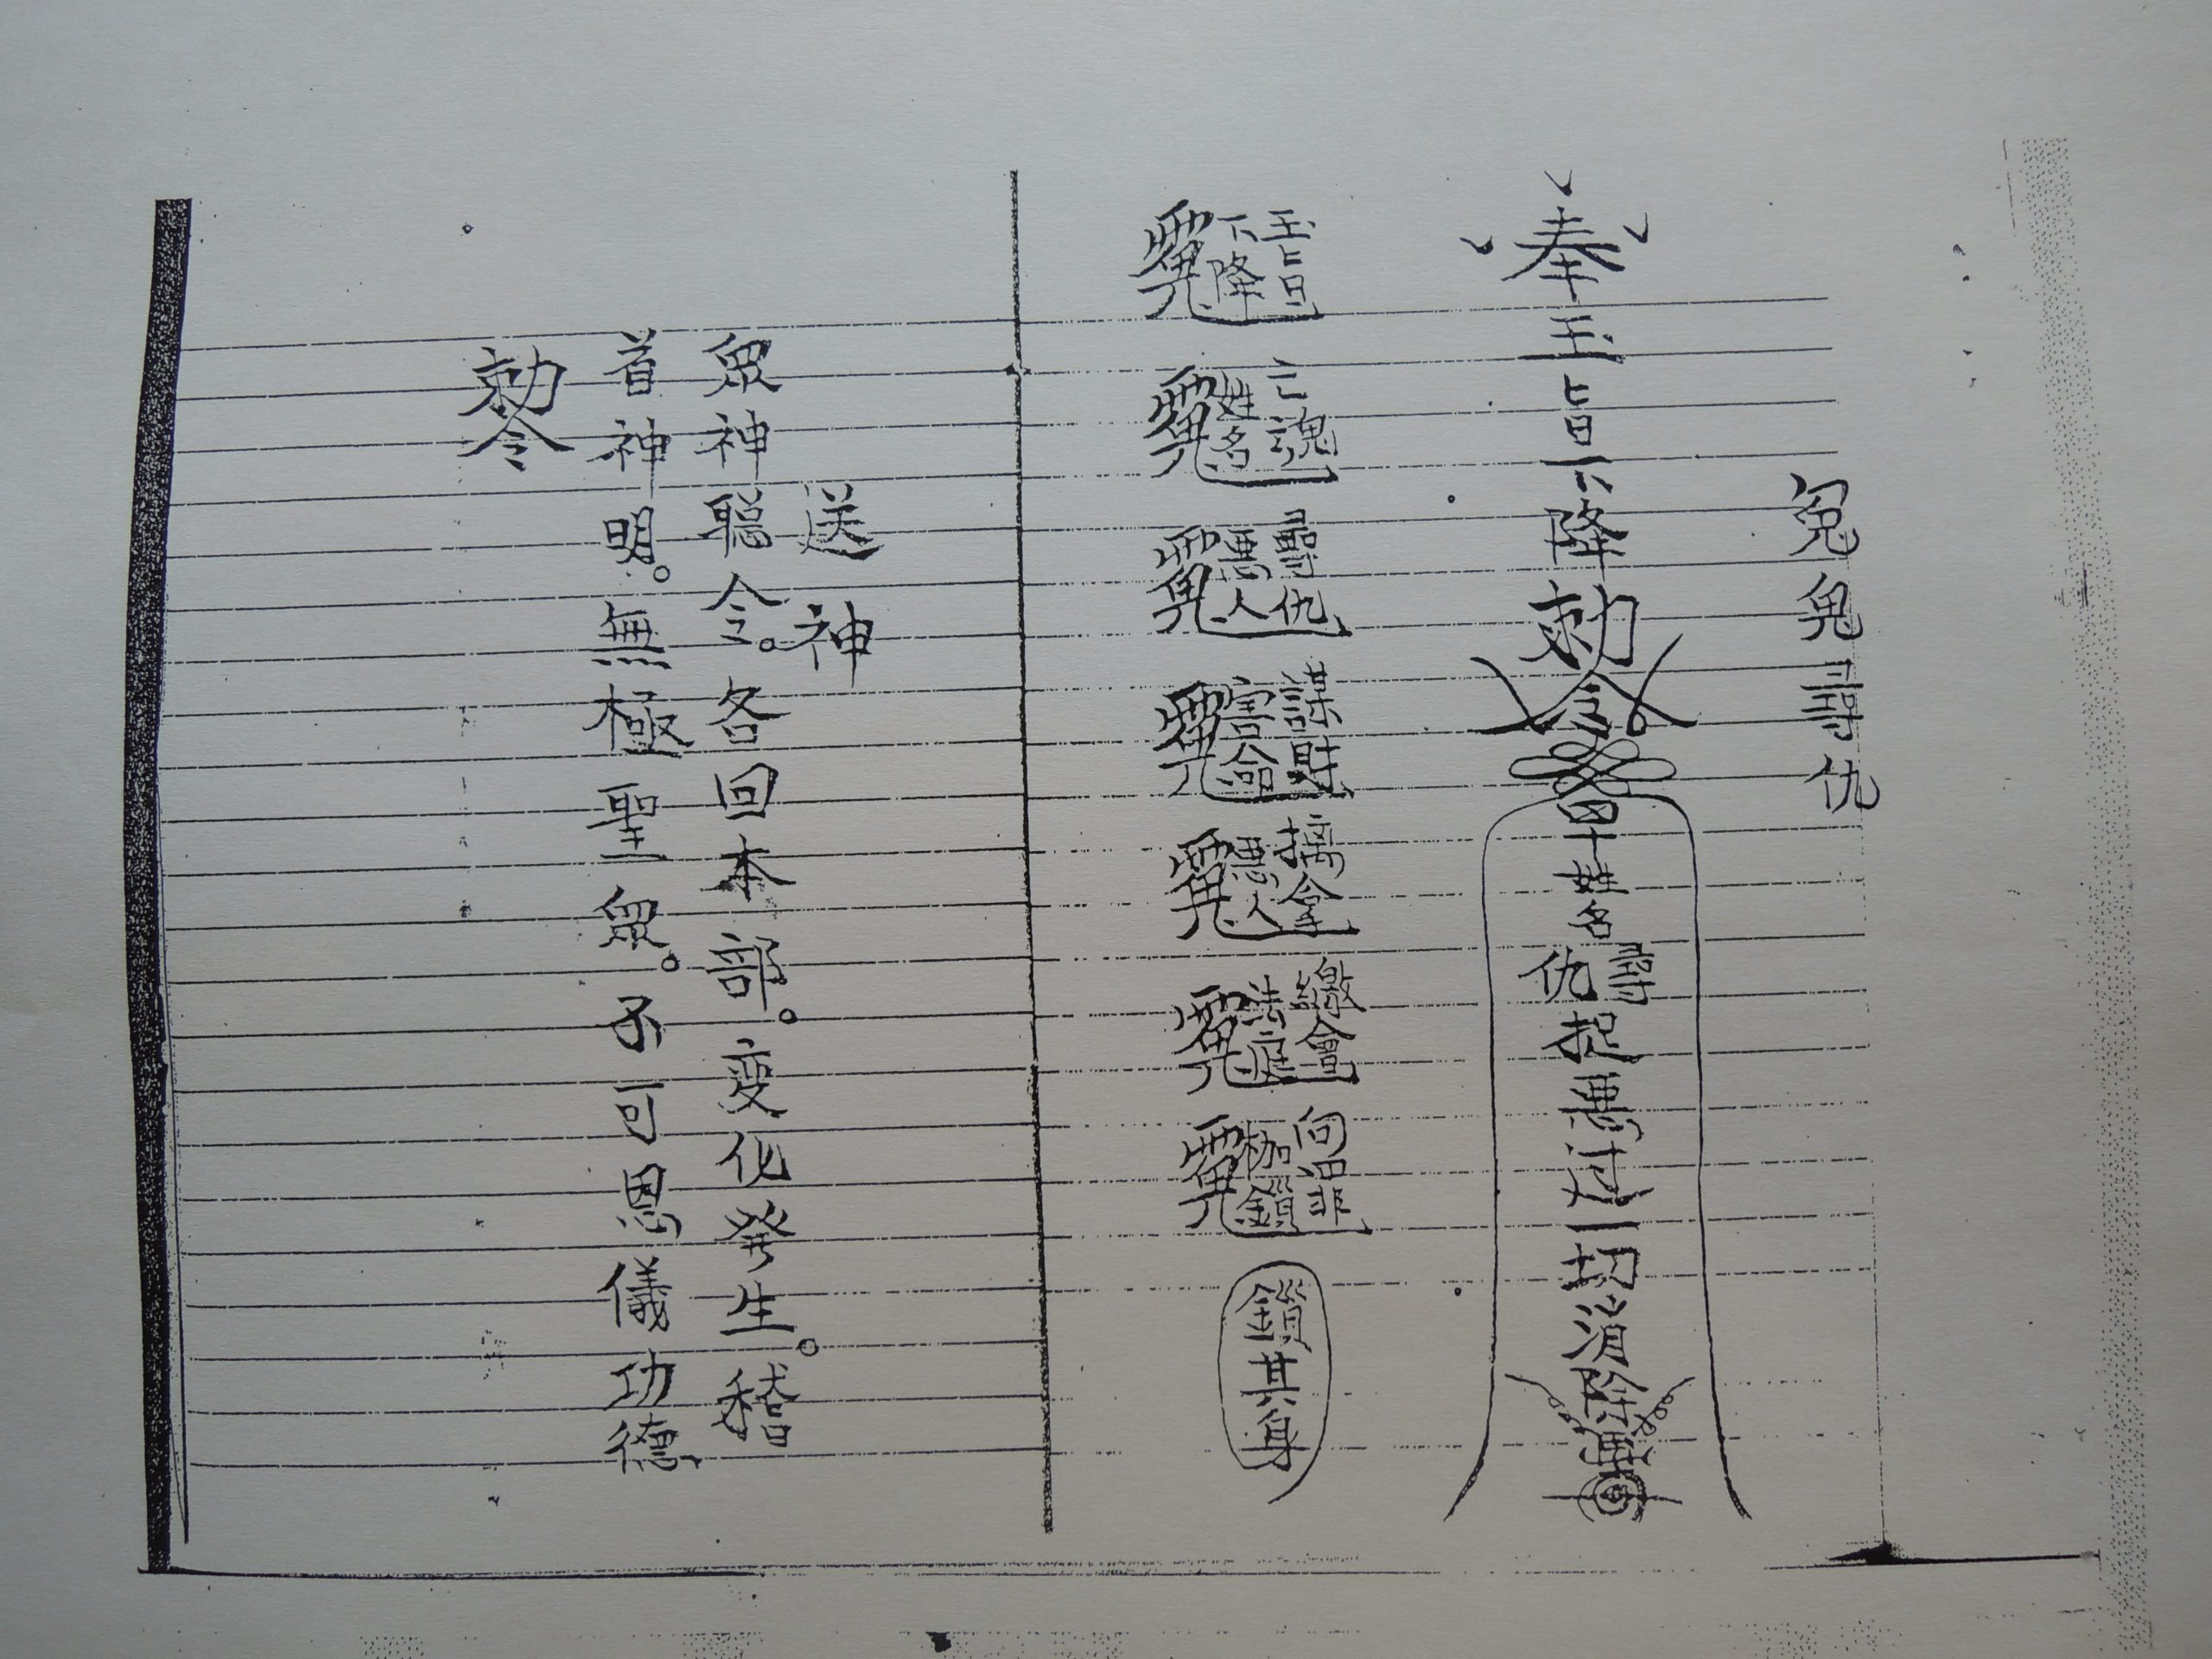 冤鬼尋仇
奉玉旨下降勅令
姓名尋仇捉惡过一切消除
玉旨下降
亡魂姓名
尋仇惡人
謀財害命
擒拿惡人
繳會法庭
问罪枷鎖
鎖其身
送神
眾神聽令。各回本部。变化発生。稽
首神明。無極聖眾。不可恩儀功德
勅令